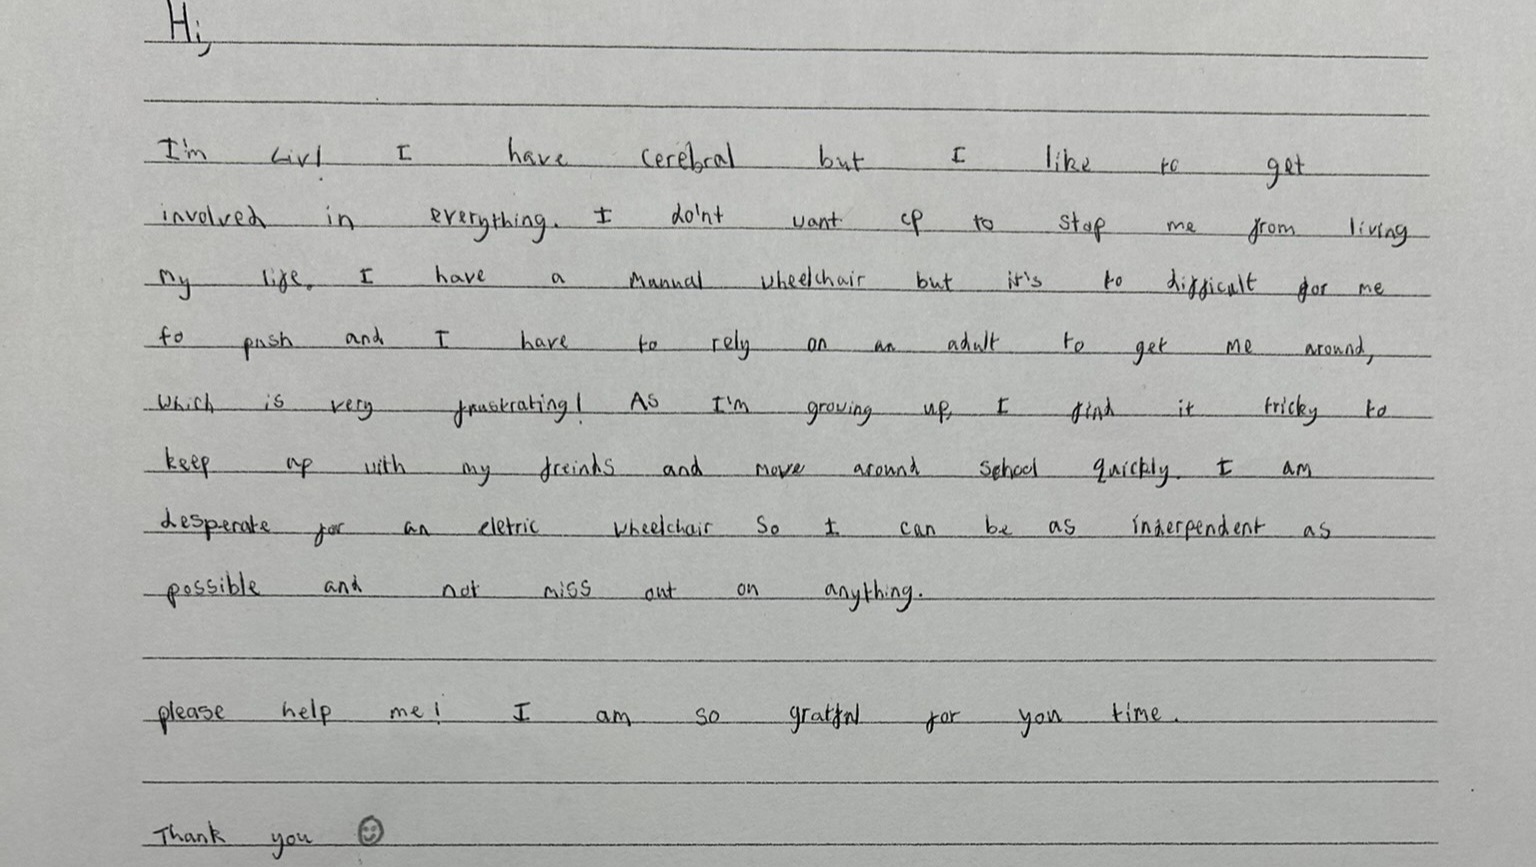 Hi,
I'm Liv! I have cerebral but I like to get
involved in everything. I do'nt want cp to stop me from living
my life. I have a manual wheelchair but it's to difficult for me
to push and I have to rely on an adult to get me around,
which is very frustrating! As I'm growing up, I find it tricky to
keep up with my freinds and move around school quickly. I am
desperate for an eletric wheelchair so I can be as inderpendent as
possible and not miss out on anything.
please help me! I am so gratful for you time.
Thank you ☺